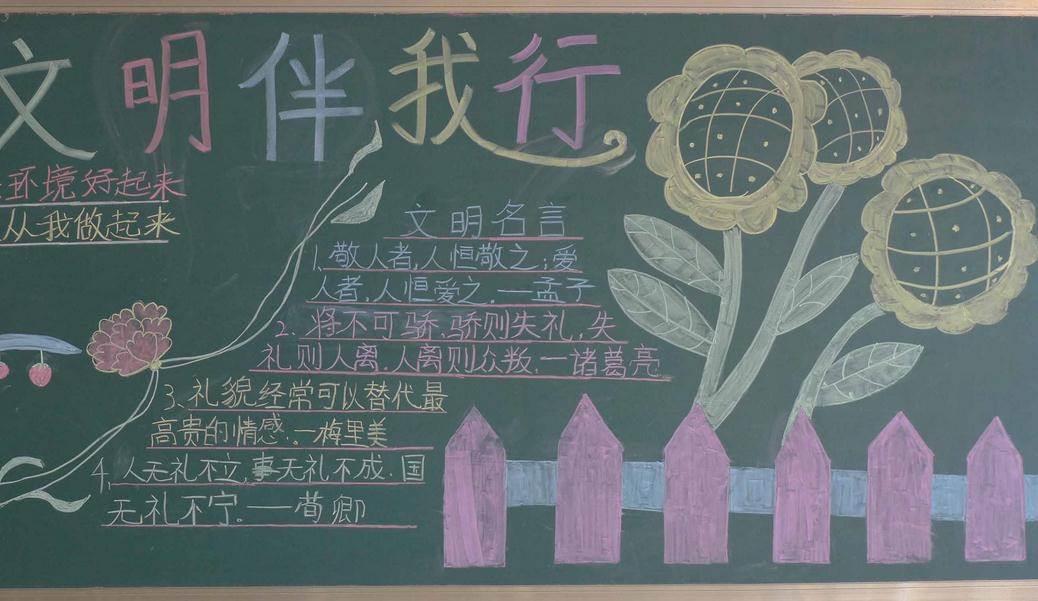 文明伴我行
环境好起来
从我做起来
文明名言
1.敬人者,人恒敬之;爱
人者,人恒爱之.—孟子
2.将不可骄,骄则失礼,失
礼则人离.人离则众叛.—诸葛亮
3.礼貌经常可以替代最
高贵的情感.—梅里美
4.人无礼不立,事无礼不成.国
无礼不宁。—荀卿